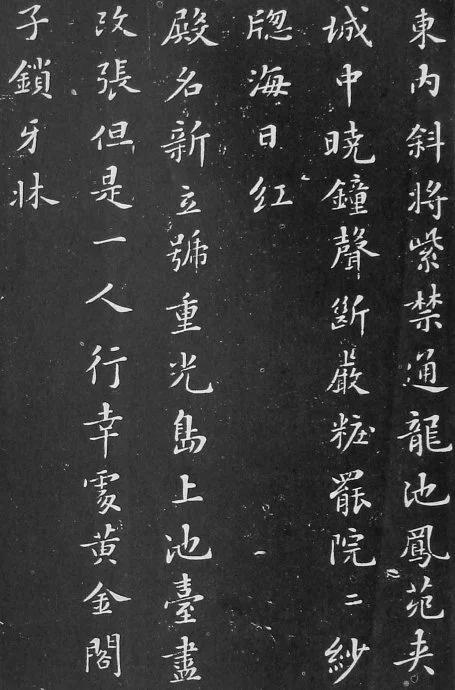 東内斜將紫禁通龍池鳳苑夾
城中曉鐘聲斷嚴粧罷院〻紗
牕海日紅
殿名新立號重光島上池臺盡
改張但是一人行幸處黄金閣
子鎖牙牀